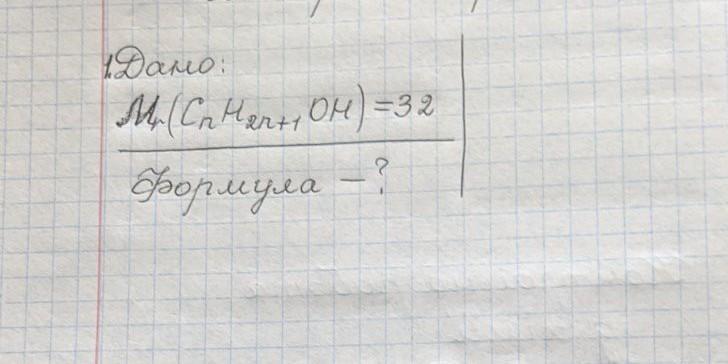 1. Дано:
Mr(CnH2n+1OH)=32
Формула – ?